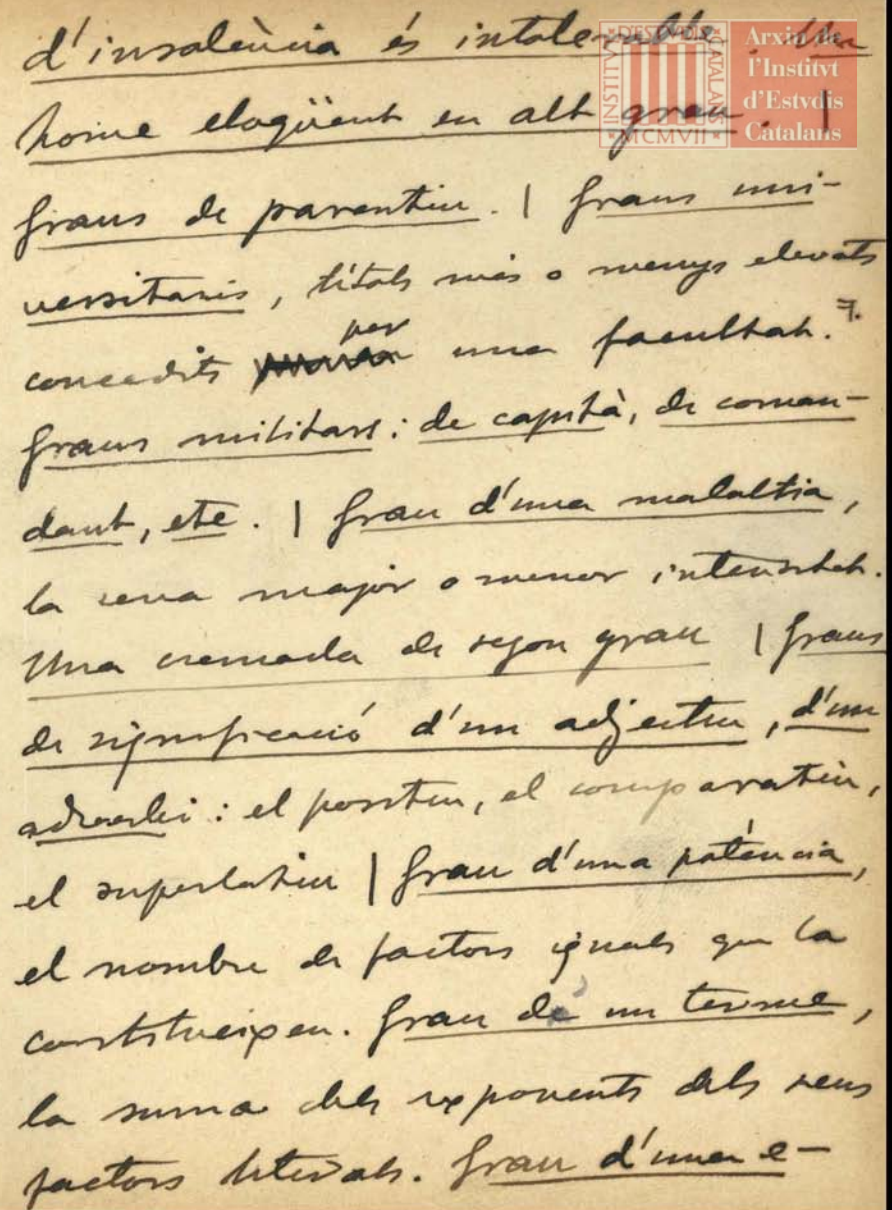 d'insolència és intolerable. Un
home eloqüent en alt grau. |
Graus de parentiu. | Graus uni-
versitaris, títols més o menys elevats
concedits per una facultat.
Graus militars: de capità, de coman-
dant, etc. | Grau d'una malaltia,
la seva major o menor intensitat.
Una cremada de segon grau | Graus
de significació d'un adjectiu, d'un
adverbi: el positiu, el comparatiu,
el superlatiu | Grau d'una potència,
el nombre de factors iguals que la
constitueixen. Grau de un terme,
la suma dels exponents dels seus
factors literals. Grau d'una e-
INSTITVT D'ESTVDIS CATALANS
MCMVII
Arxiu de
l'Institvt
d'Estvdis
Catalans